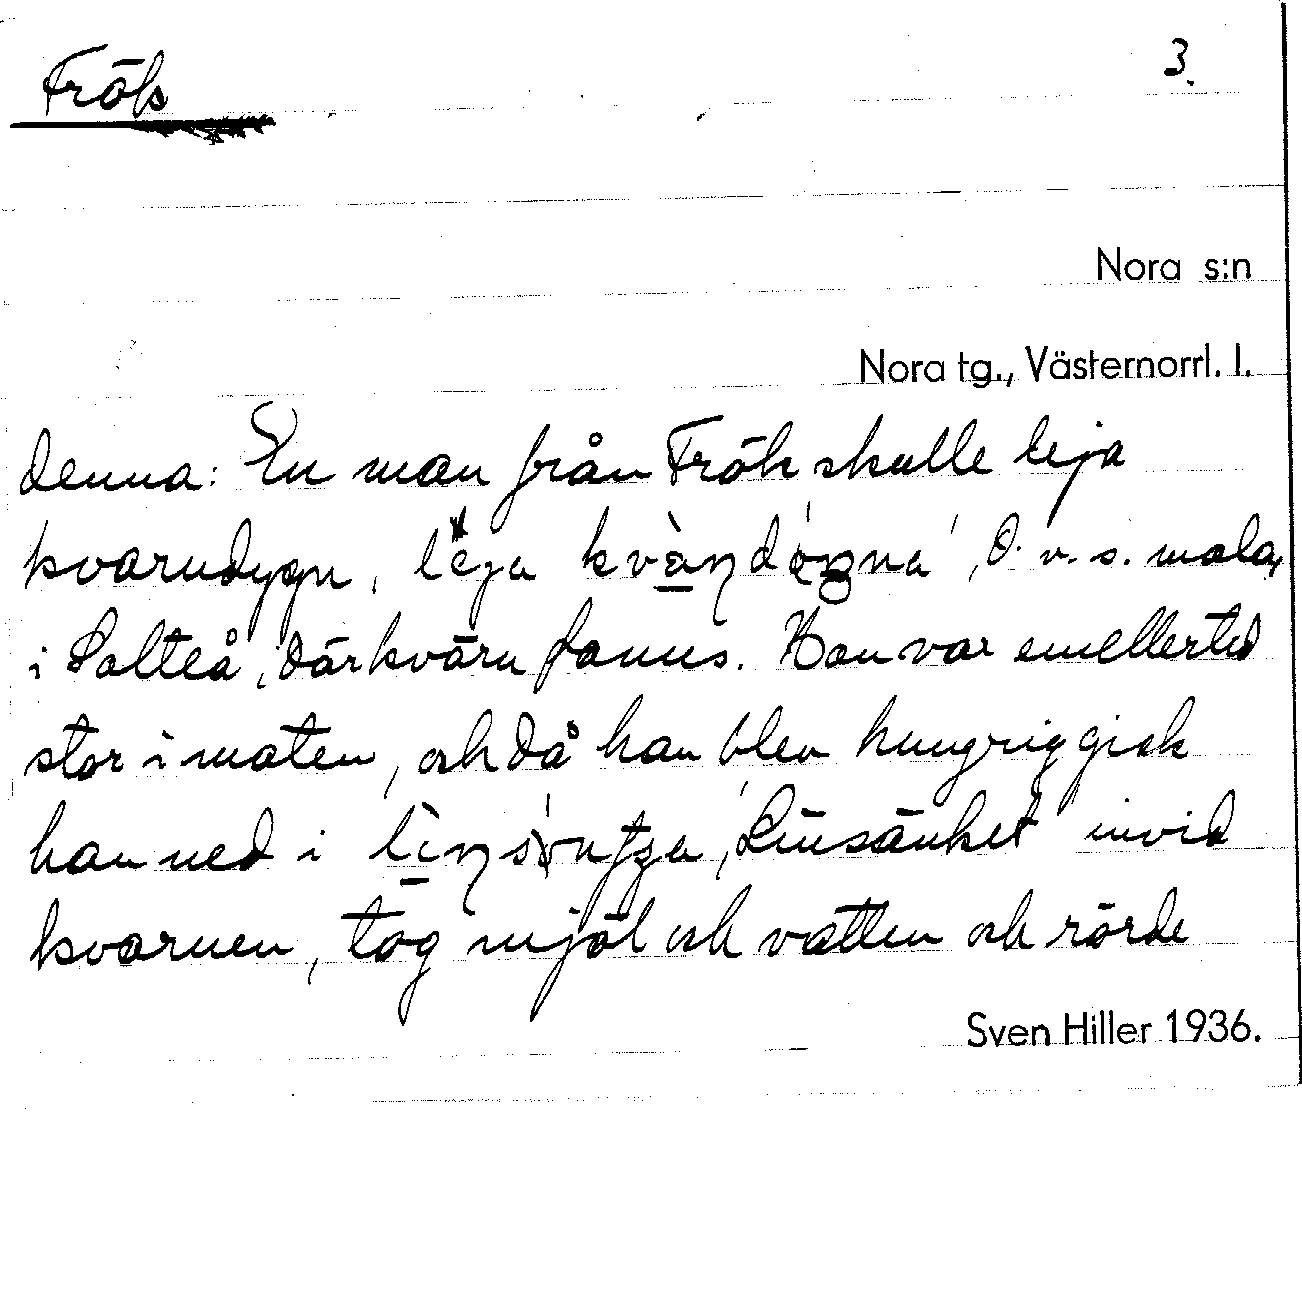 Frök 3.
Nora s:n
Nora tg., Västernorrl. l.
denna: En man från Frök skulle leja
kvarndygn, d. v. s. mala,
i Salteå, där kvarn fanns. Han var emellertid
stor i maten, och då han blev hungrig gick
han ned i Linsänket invid
kvarnen, tog mjöl och vatten och rörde
Sven Hiller 1936.